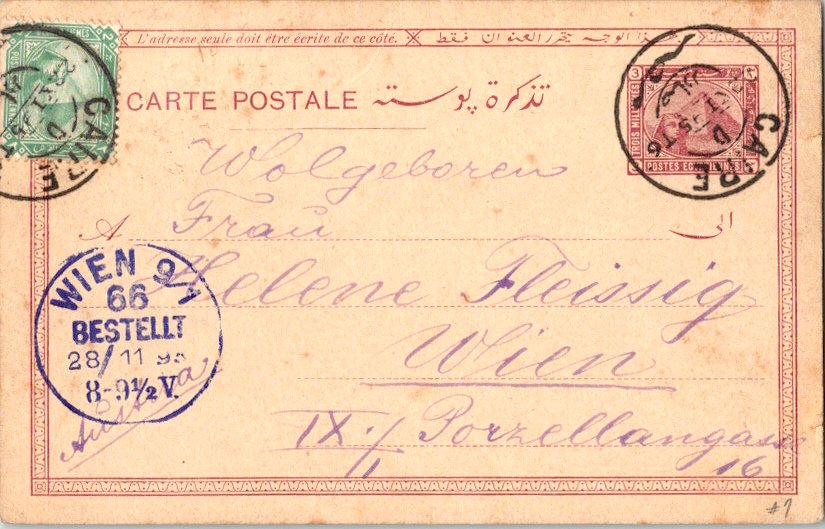 L'adresse seule doit être écrite de ce côté. هذا الوجه يحرر العنوان فقط
CARTE POSTALE تذكرة پوسته
3 TROIS MILLIEMES
POSTES EGYPTIENNES
CAIRE
D
CAIRE
D
Wolgeboren
A Frau الى
Helene Fleissig
Wien
IX./1 Porzellangasse
16
Austria
WIEN 9/1
66
BESTELLT
28/11 95
8-9½V.
#7